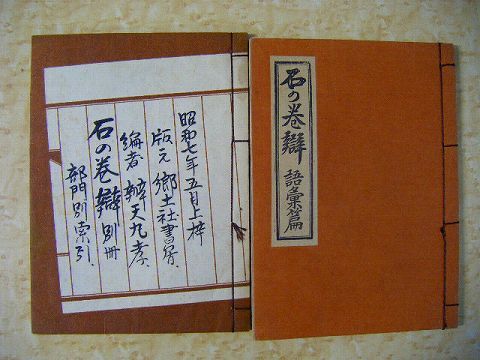 石の巻辯 語彙篇
昭和七年五月上梓
版元 郷土社書房、
編者 辯天丸孝、
石の巻辯 別冊
部門別索引、